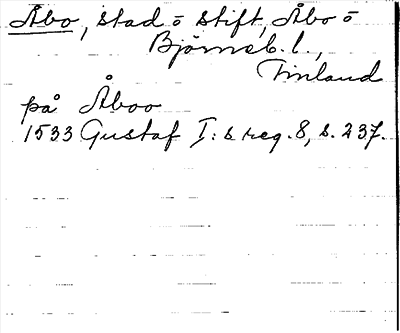 Åbo, stad ō stift, Åbo ō
Björneb. l.,
Finland
på Åboo
1533 Gustaf I:s reg. 8, s. 237.